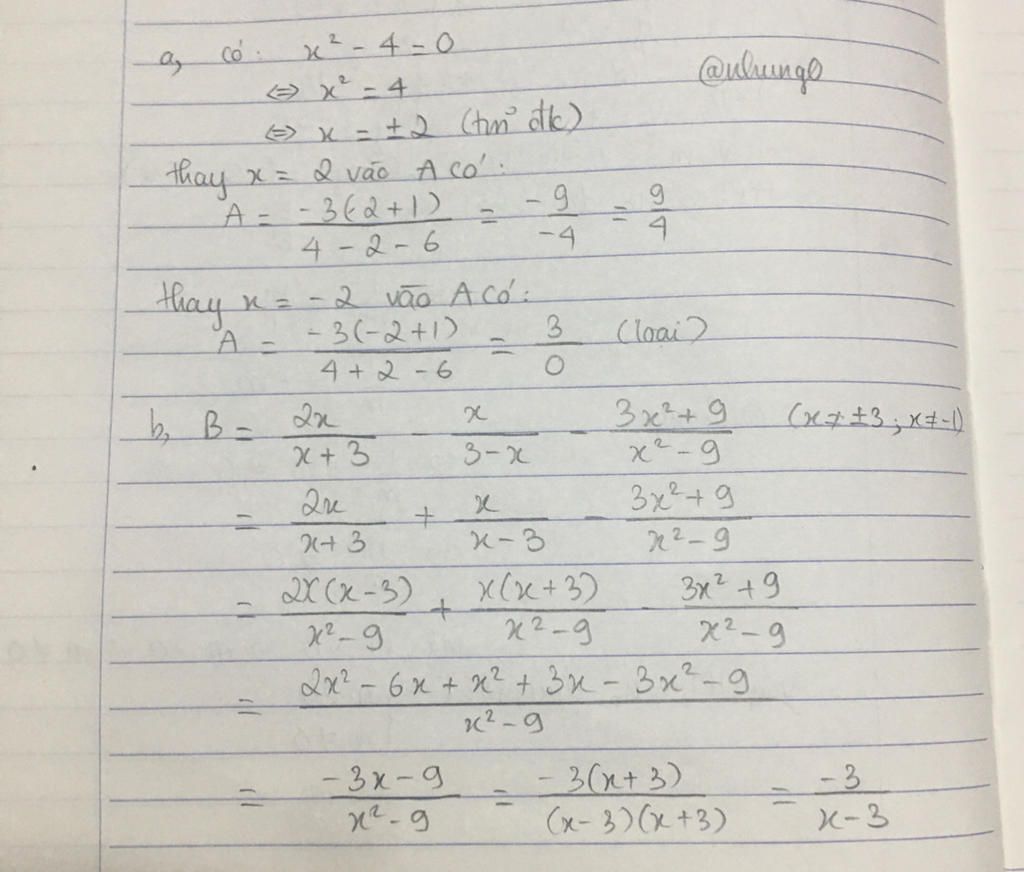 a, có: x² - 4 = 0
@nhung0
⇔ x² = 4
⇔ x = ±2 (tm đk)
thay x = 2 vào A có:
A = -3(2+1) / 4 - 2 - 6 = -9 / -4 = 9 / 4
thay x = -2 vào A có:
A = -3(-2+1) / 4 + 2 - 6 = 3 / 0 (loại)
b, B = 2x / x + 3 - x / 3 - x - 3x² + 9 / x² - 9 (x ≠ ±3; x ≠ -1)
= 2x / x + 3 + x / x - 3 - 3x² + 9 / x² - 9
= 2x(x - 3) / x² - 9 + x(x + 3) / x² - 9 - 3x² + 9 / x² - 9
= 2x² - 6x + x² + 3x - 3x² - 9 / x² - 9
= -3x - 9 / x² - 9 = -3(x + 3) / (x - 3)(x + 3) = -3 / x - 3